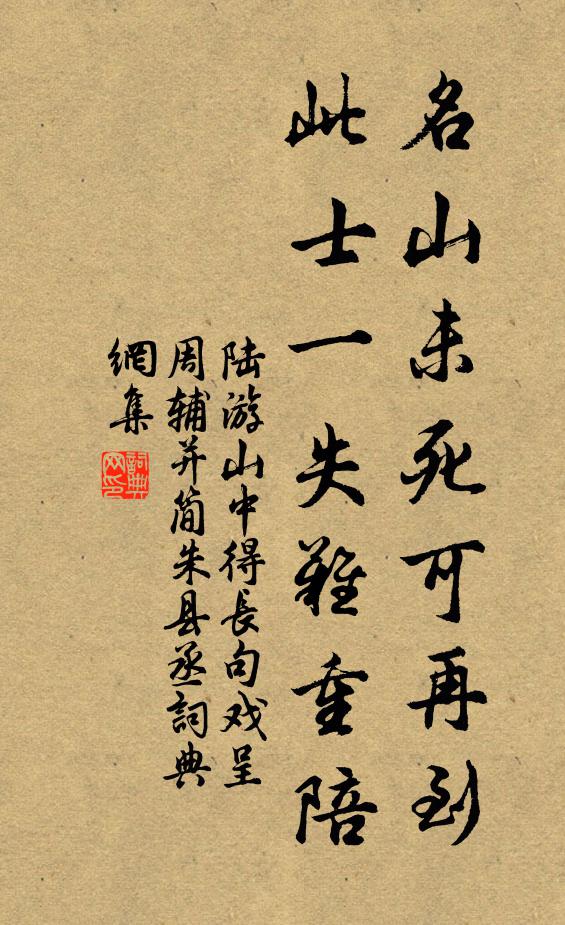 名山未死可再到
此士一失難重陪
陆游山中得長句戏呈
周辅并简朱县丞詞典
網集
詞典
网印